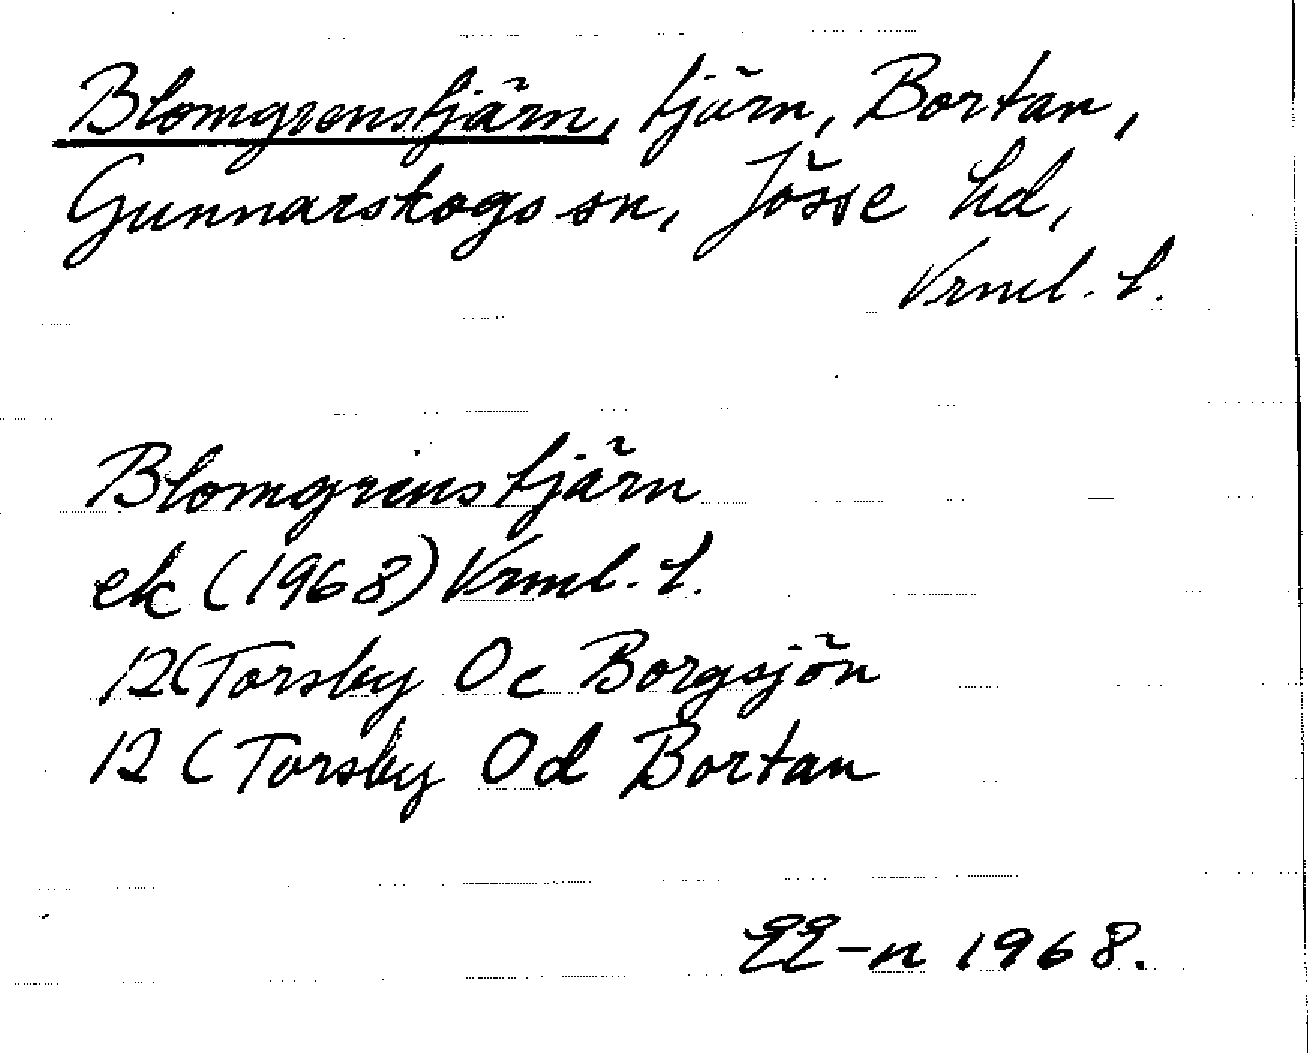 Blomgrenstjärn, tjärn, Bortan,
Gunnarskogs sn, Jösse hd,
Vrml. l.
Blomgrenstjärn
ek (1968) Vrml. l.
12C Torsby 0c Borgsjön
12C Torsby 0d Bortan
EE-n 1968.